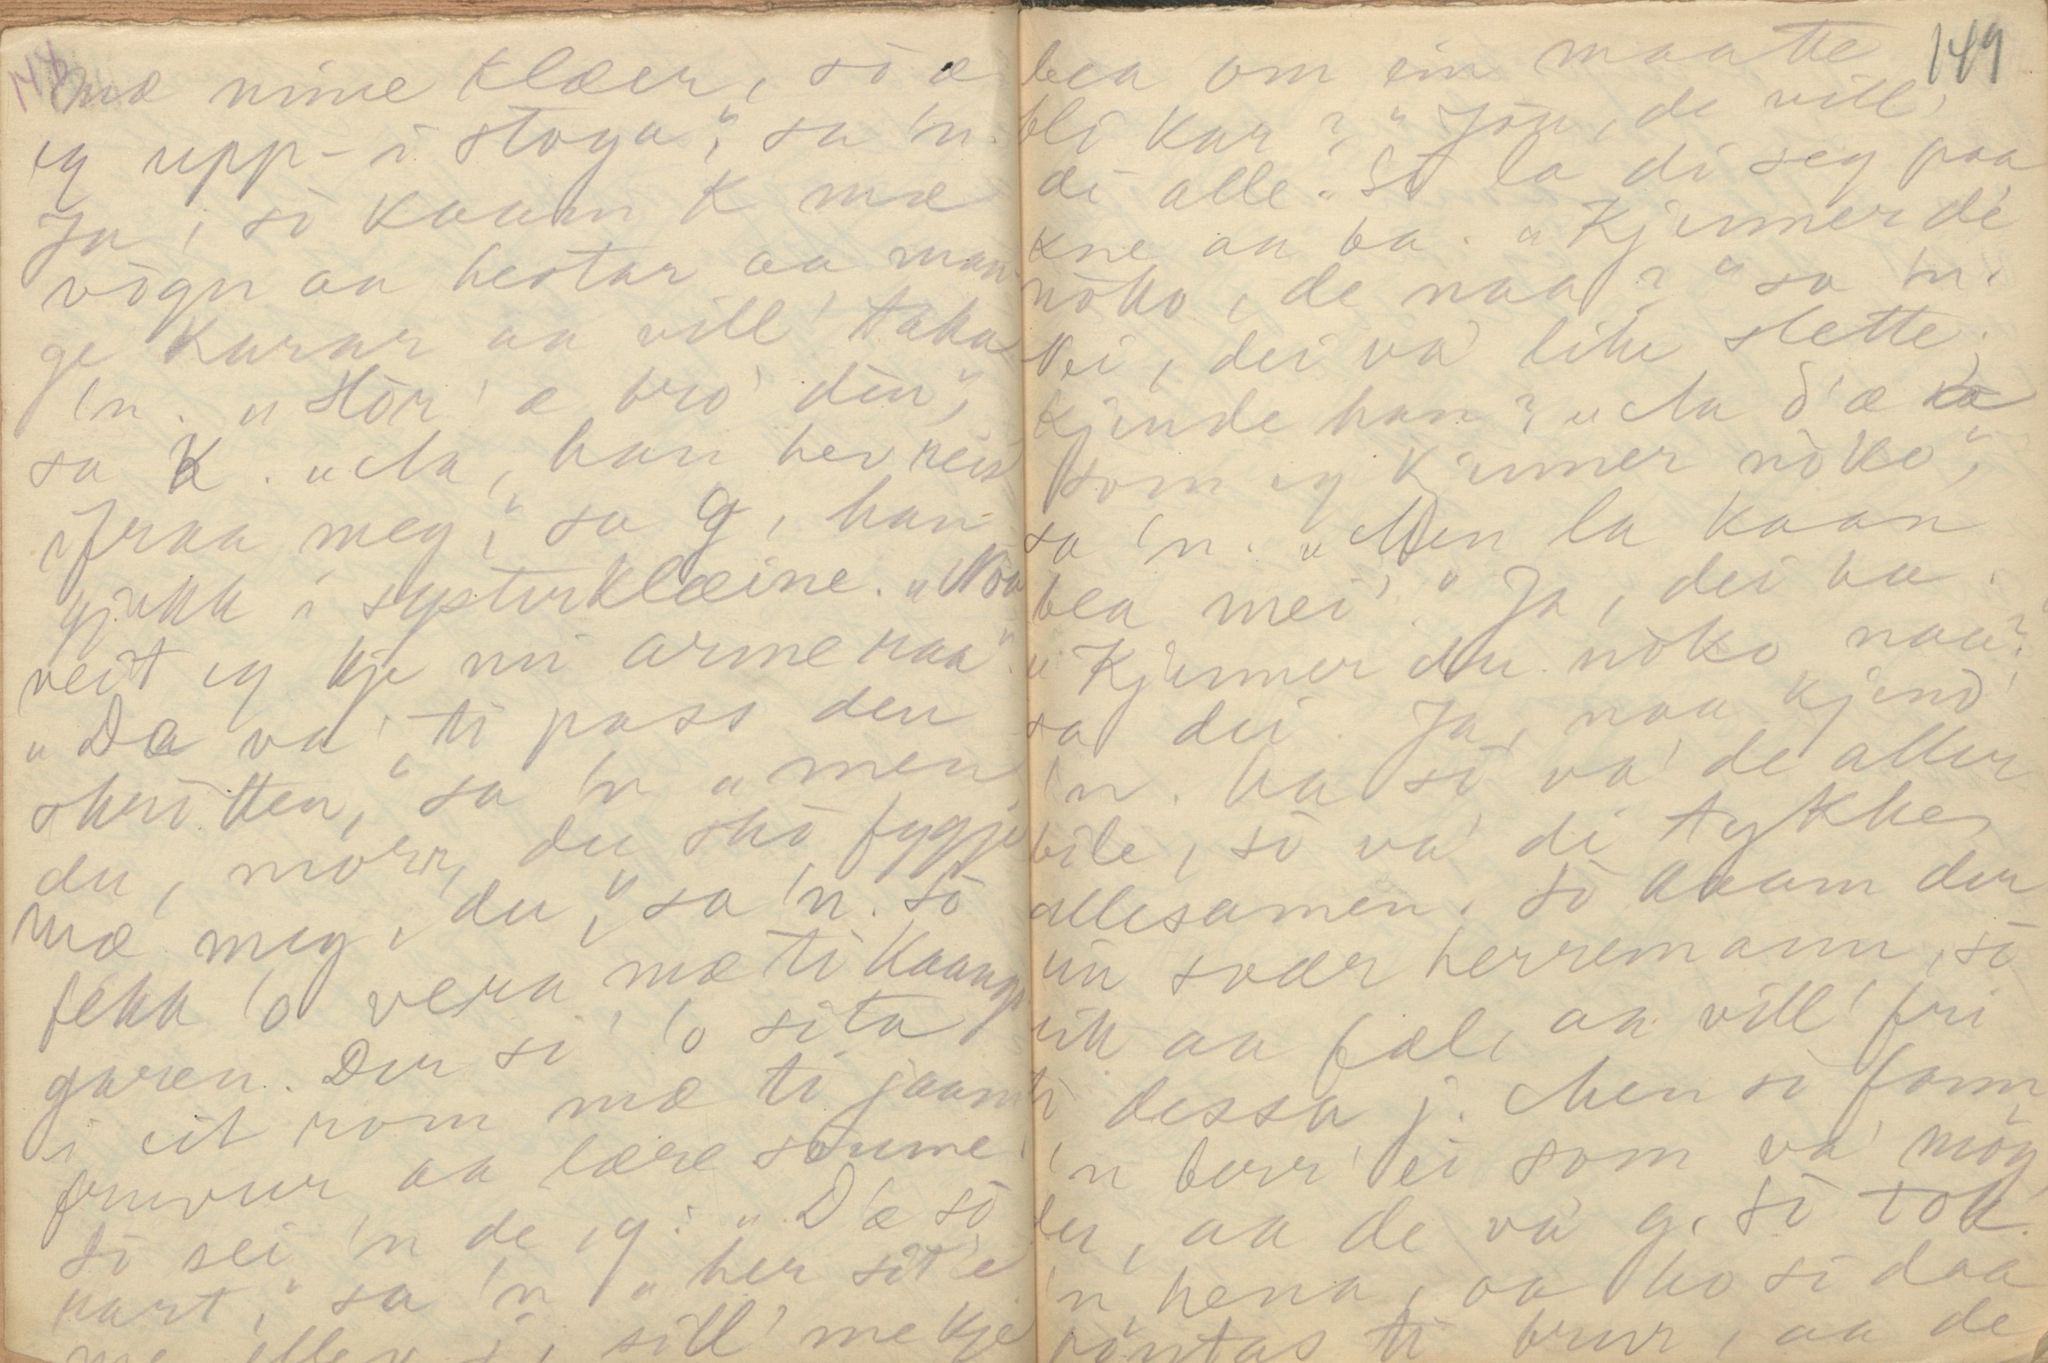 148
mæ mine klæer, sò æ
eg upp-i stogu", sa 'n.
Ja, sò kaam K mæ
vògn aa hestar aa man-
ge karar aa vill' taka
'n. "Hòr' æ bro' din",
sa K. "Aa, han hev reist
ifraa meg", sa G, han
gjekk i systerklæine. "Nòu
veit eg kje mi arme raa".
"Dæ va' ti pass den
skròtten," sa 'n "men
du, mòrr, du skò fygje
mæ meg, du", sa 'n. Sò
fekk 'o vera mæ ti kaangs
garen. Der si' 'o sita
i eit rom mæ ti jaam
fruvur aa lære soume.
Sò sei 'n de, G: "D'æ sò
rart," sa 'n "her sit'e
me elleve j, sill' me kje
149
bea om ein maatte
bli kar?" "Jòu, de vill'
di alle. Sò la di seg paa
kne aa ba. "Kjenner de
nòko, de naa?" sa 'n.
Nei, dei va' like slette.
Kjende han? "Aa d'æ
som eg kjenner nòko",
sa 'n. "Men la kaan
bea mei'." Ja, dei ba.
"Kjenner du nòko naa?"
sa dei. Ja, naa kjend'
'n. Ba sò va' de aller
bile, sò va' di tykke
allesamen. Sò kaam der
ein svær herremann, sò
rik aa fæl, aa vill' fri
ti dessa j. Men sò fann
'n berr' ei som va' mòg
le, aa de va' G. Sò tok
'n hena, aa ho si daa
pòntas ti brur, aa de